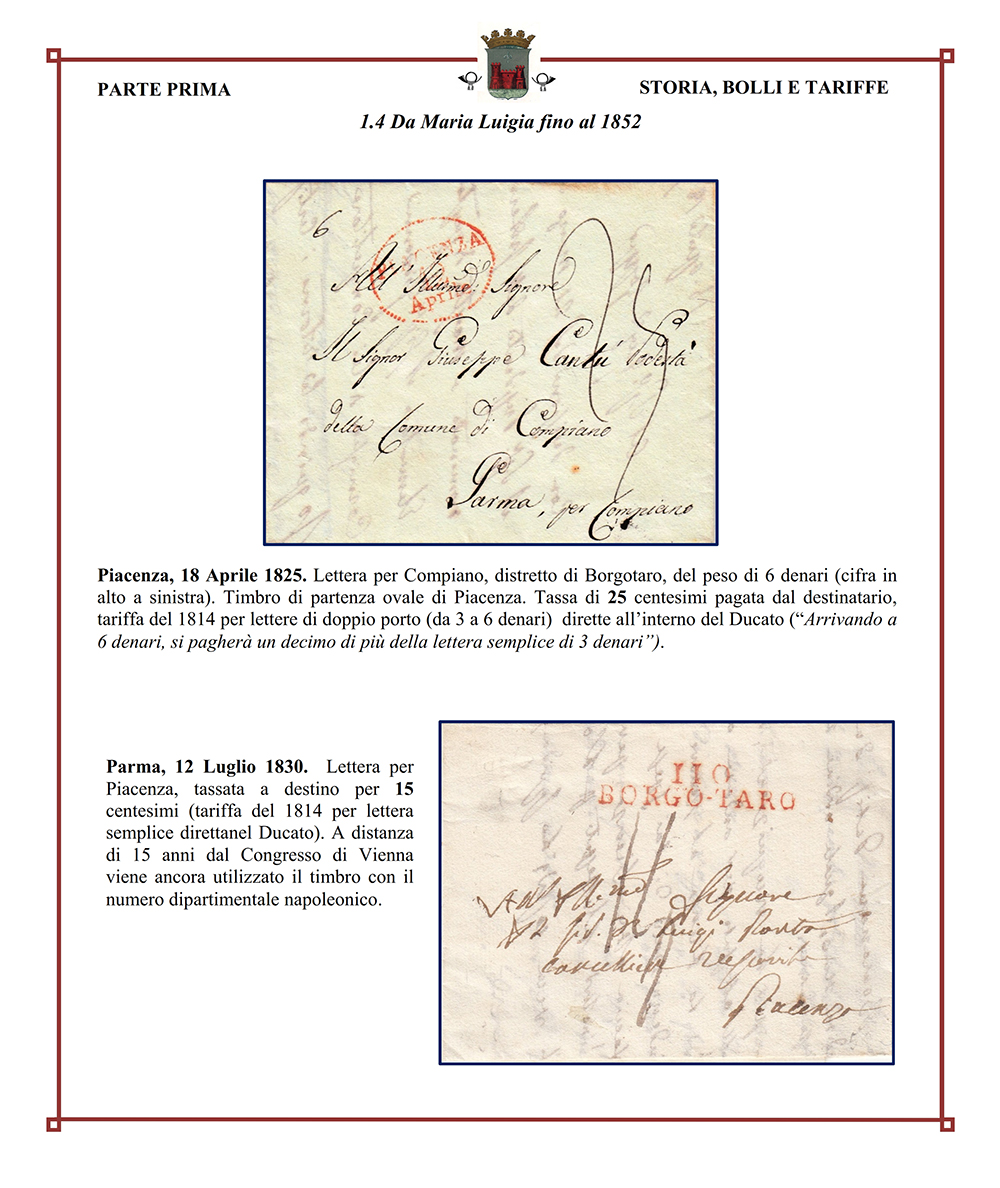 PARTE PRIMA
STORIA, BOLLI E TARIFFE
1.4 Da Maria Luigia fino al 1852
6
PIACENZA
Aprile
25
All' Signore
Il Signor Giuseppe Cantù Podestà
della Comune di Compiano
Parma, per Compiano
Piacenza, 18 Aprile 1825. Lettera per Compiano, distretto di Borgotaro, del peso di 6 denari (cifra in
alto a sinistra). Timbro di partenza ovale di Piacenza. Tassa di 25 centesimi pagata dal destinatario,
tariffa del 1814 per lettere di doppio porto (da 3 a 6 denari) dirette all'interno del Ducato ("Arrivando a
6 denari, si pagherà un decimo di più della lettera semplice di 3 denari").
Parma, 12 Luglio 1830. Lettera per
Piacenza, tassata a destino per 15
centesimi (tariffa del 1814 per lettera
semplice direttanel Ducato). A distanza
di 15 anni dal Congresso di Vienna
viene ancora utilizzato il timbro con il
numero dipartimentale napoleonico.
110
BORGO-TARO
Signore
Luigi
Piacenza